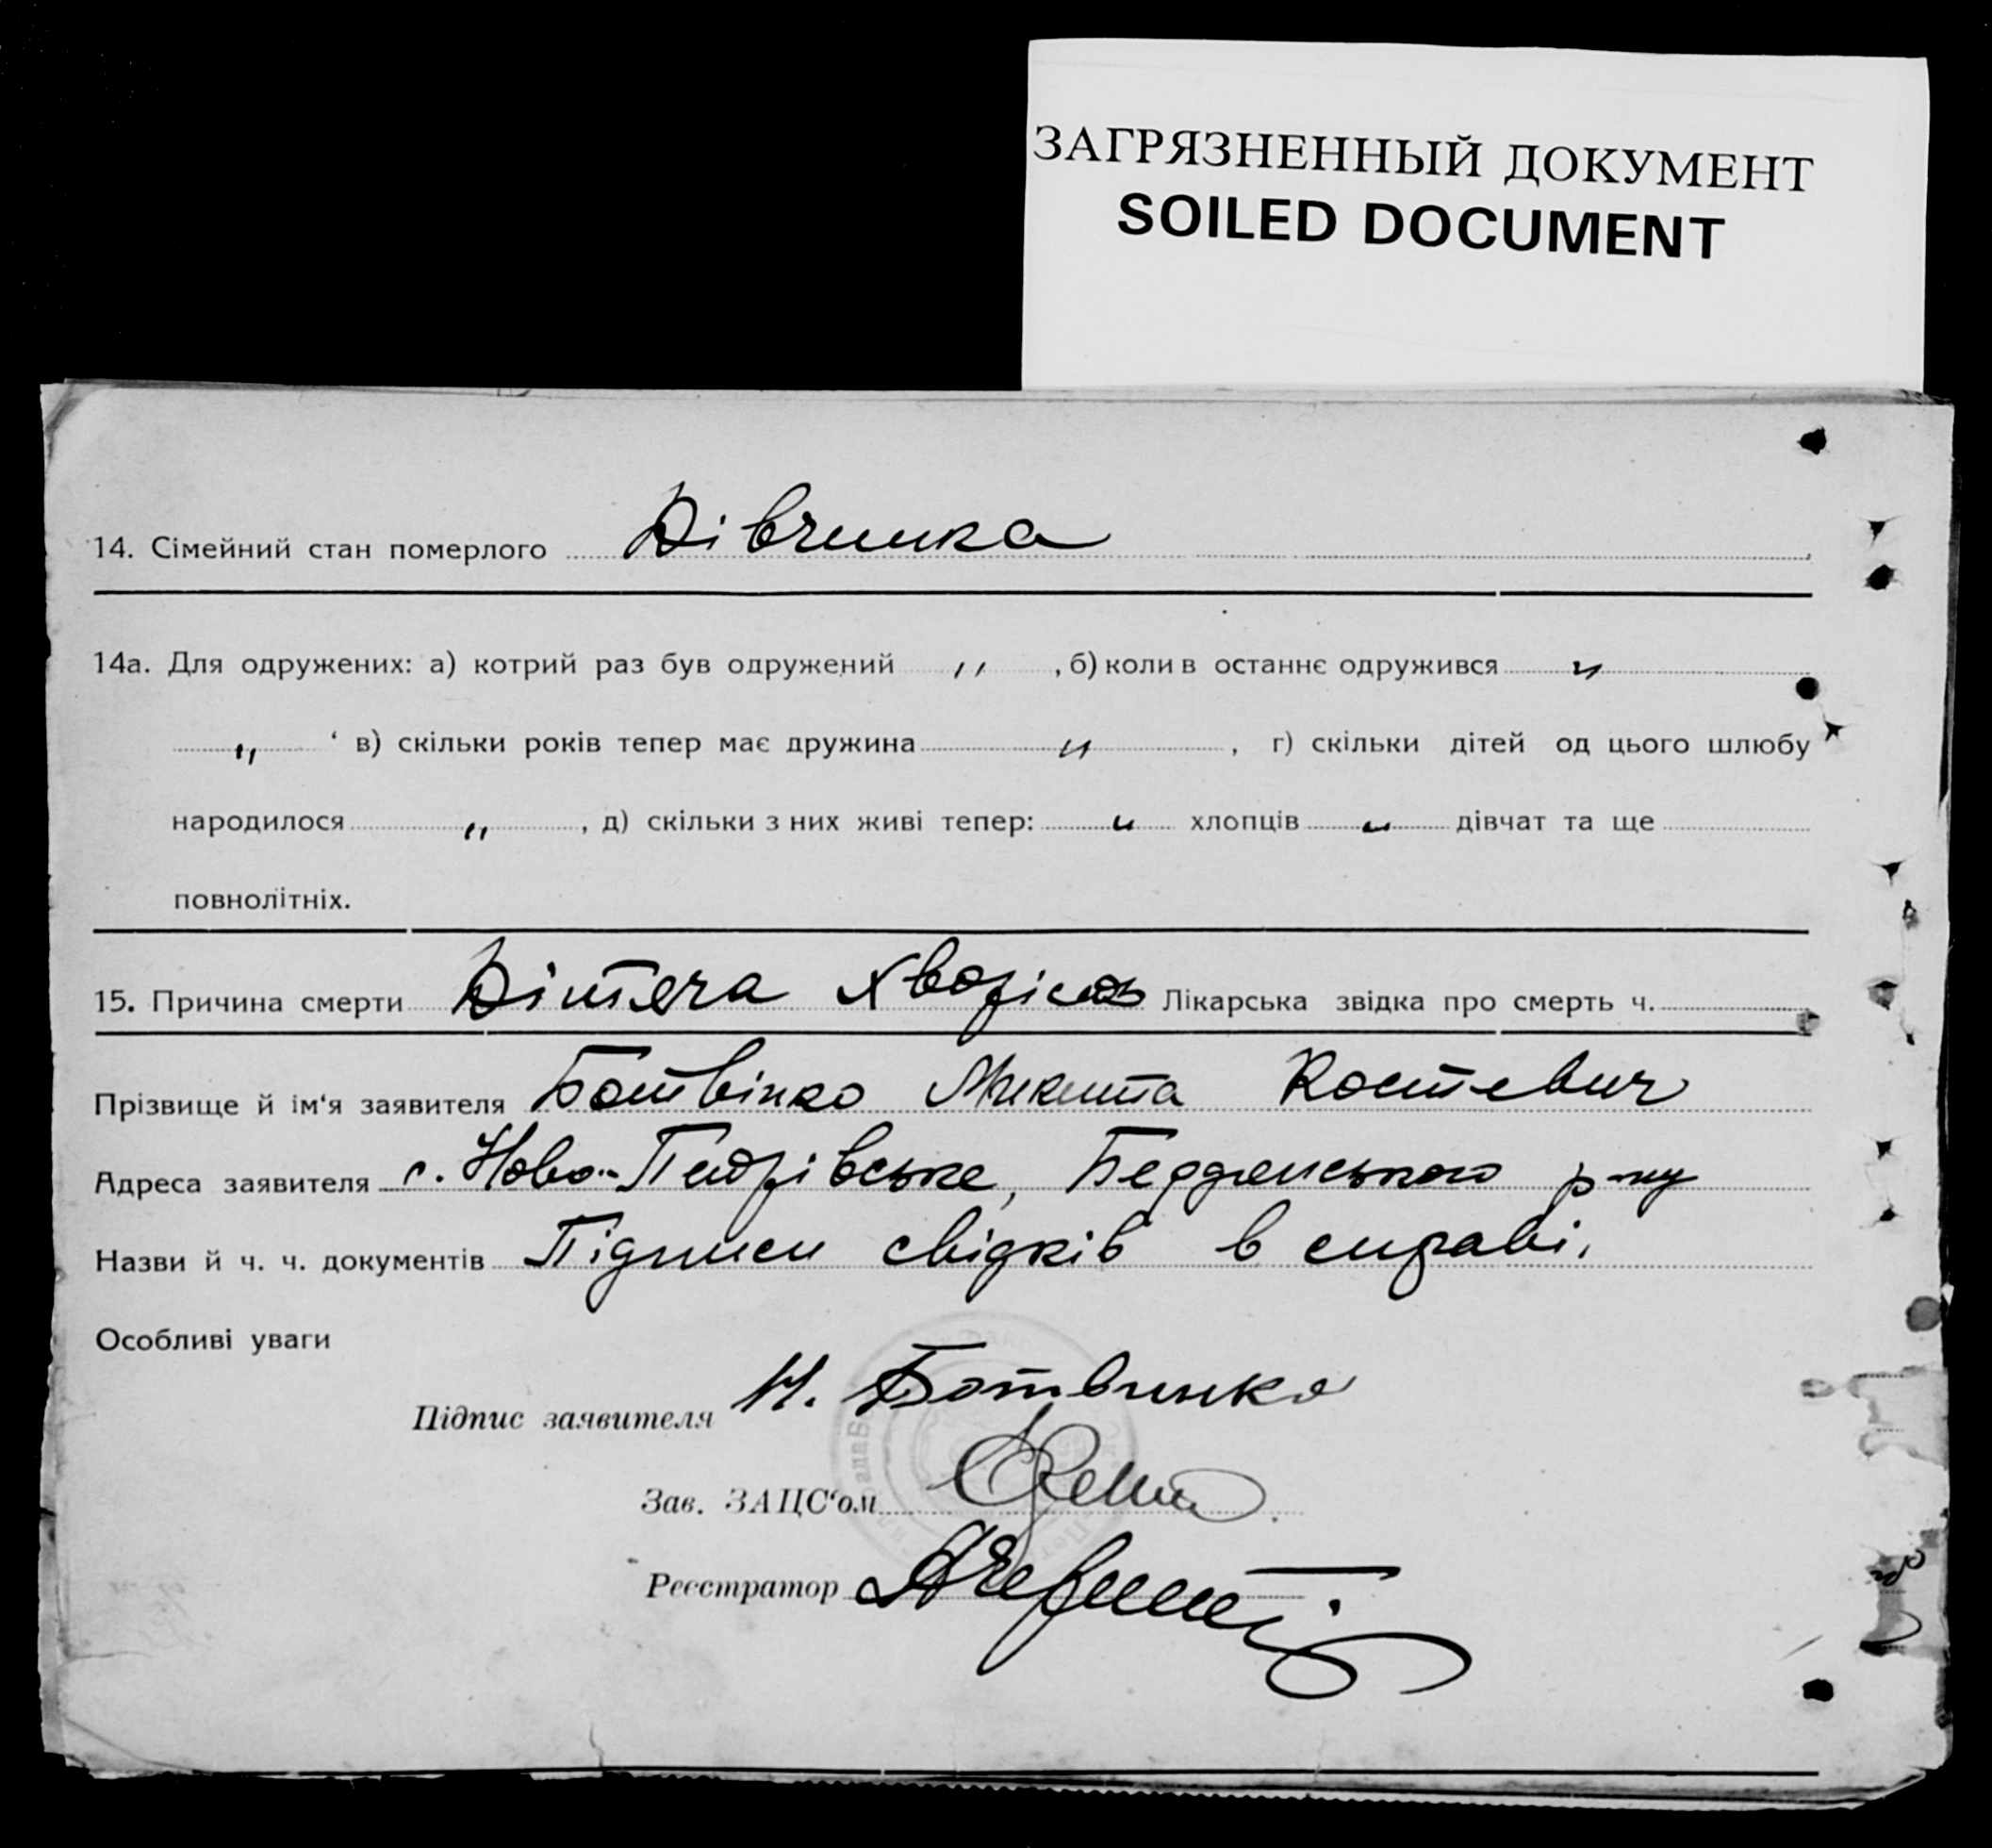 ЗАГРЯЗНЕННЫЙ ДОКУМЕНТ
SOILED DOCUMENT
14. Сімейний стан померлого Дівчинка
14а. Для одружених: а) котрий раз був одружений " , б) коли в останнє одружився "
" ' в) скільки років тепер має дружина " , г) скільки дітей од цього шлюбу
народилося " , д) скільки з них живі тепер: " хлопців " дівчат та ще
повнолітніх.
15. Причина смерти Дітяча Лікарська звідка про смерть ч.
Прізвище й ім'я заявителя Ботвінко Микита Костевич
Адреса заявителя с. Ново-Петрівське, Бердянського р-ну
Назви й ч. ч. документів Підписи свідків в справі.
Особливі уваги
Підпис заявителя Н. Ботвинко
Зав. ЗАЦС'ом
Реєстратор